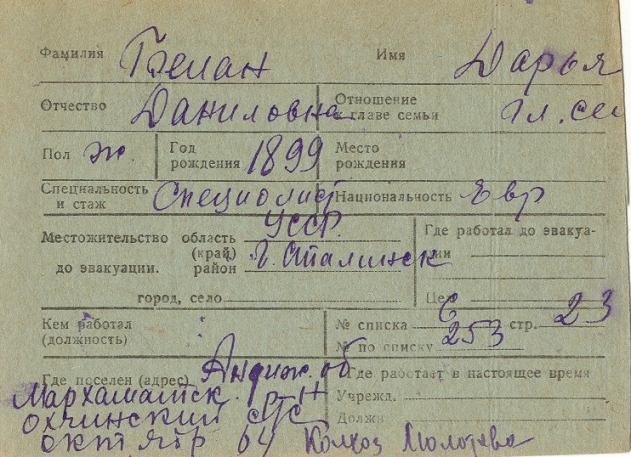 Фамилия Белан Имя Дарья
Отчество Даниловна Отношение к главе семьи гл. сем
Пол ж Год рождения 1899 Место рождения
Специальность и стаж Специолист Национальность Евр
Местожительство область (край) УССР. Где работал до эвакуации
до эвакуации. район г. Сталинск
город, село Цех
Кем работал (должность) № списка 6 стр. 23
№ по списку 253
Где поселен (адрес) Андиж. об Где работает в настоящее время
Мархаматск. р-н Учрежд.
охчинский с/с Должн
октябр 64 Колхоз Молотова